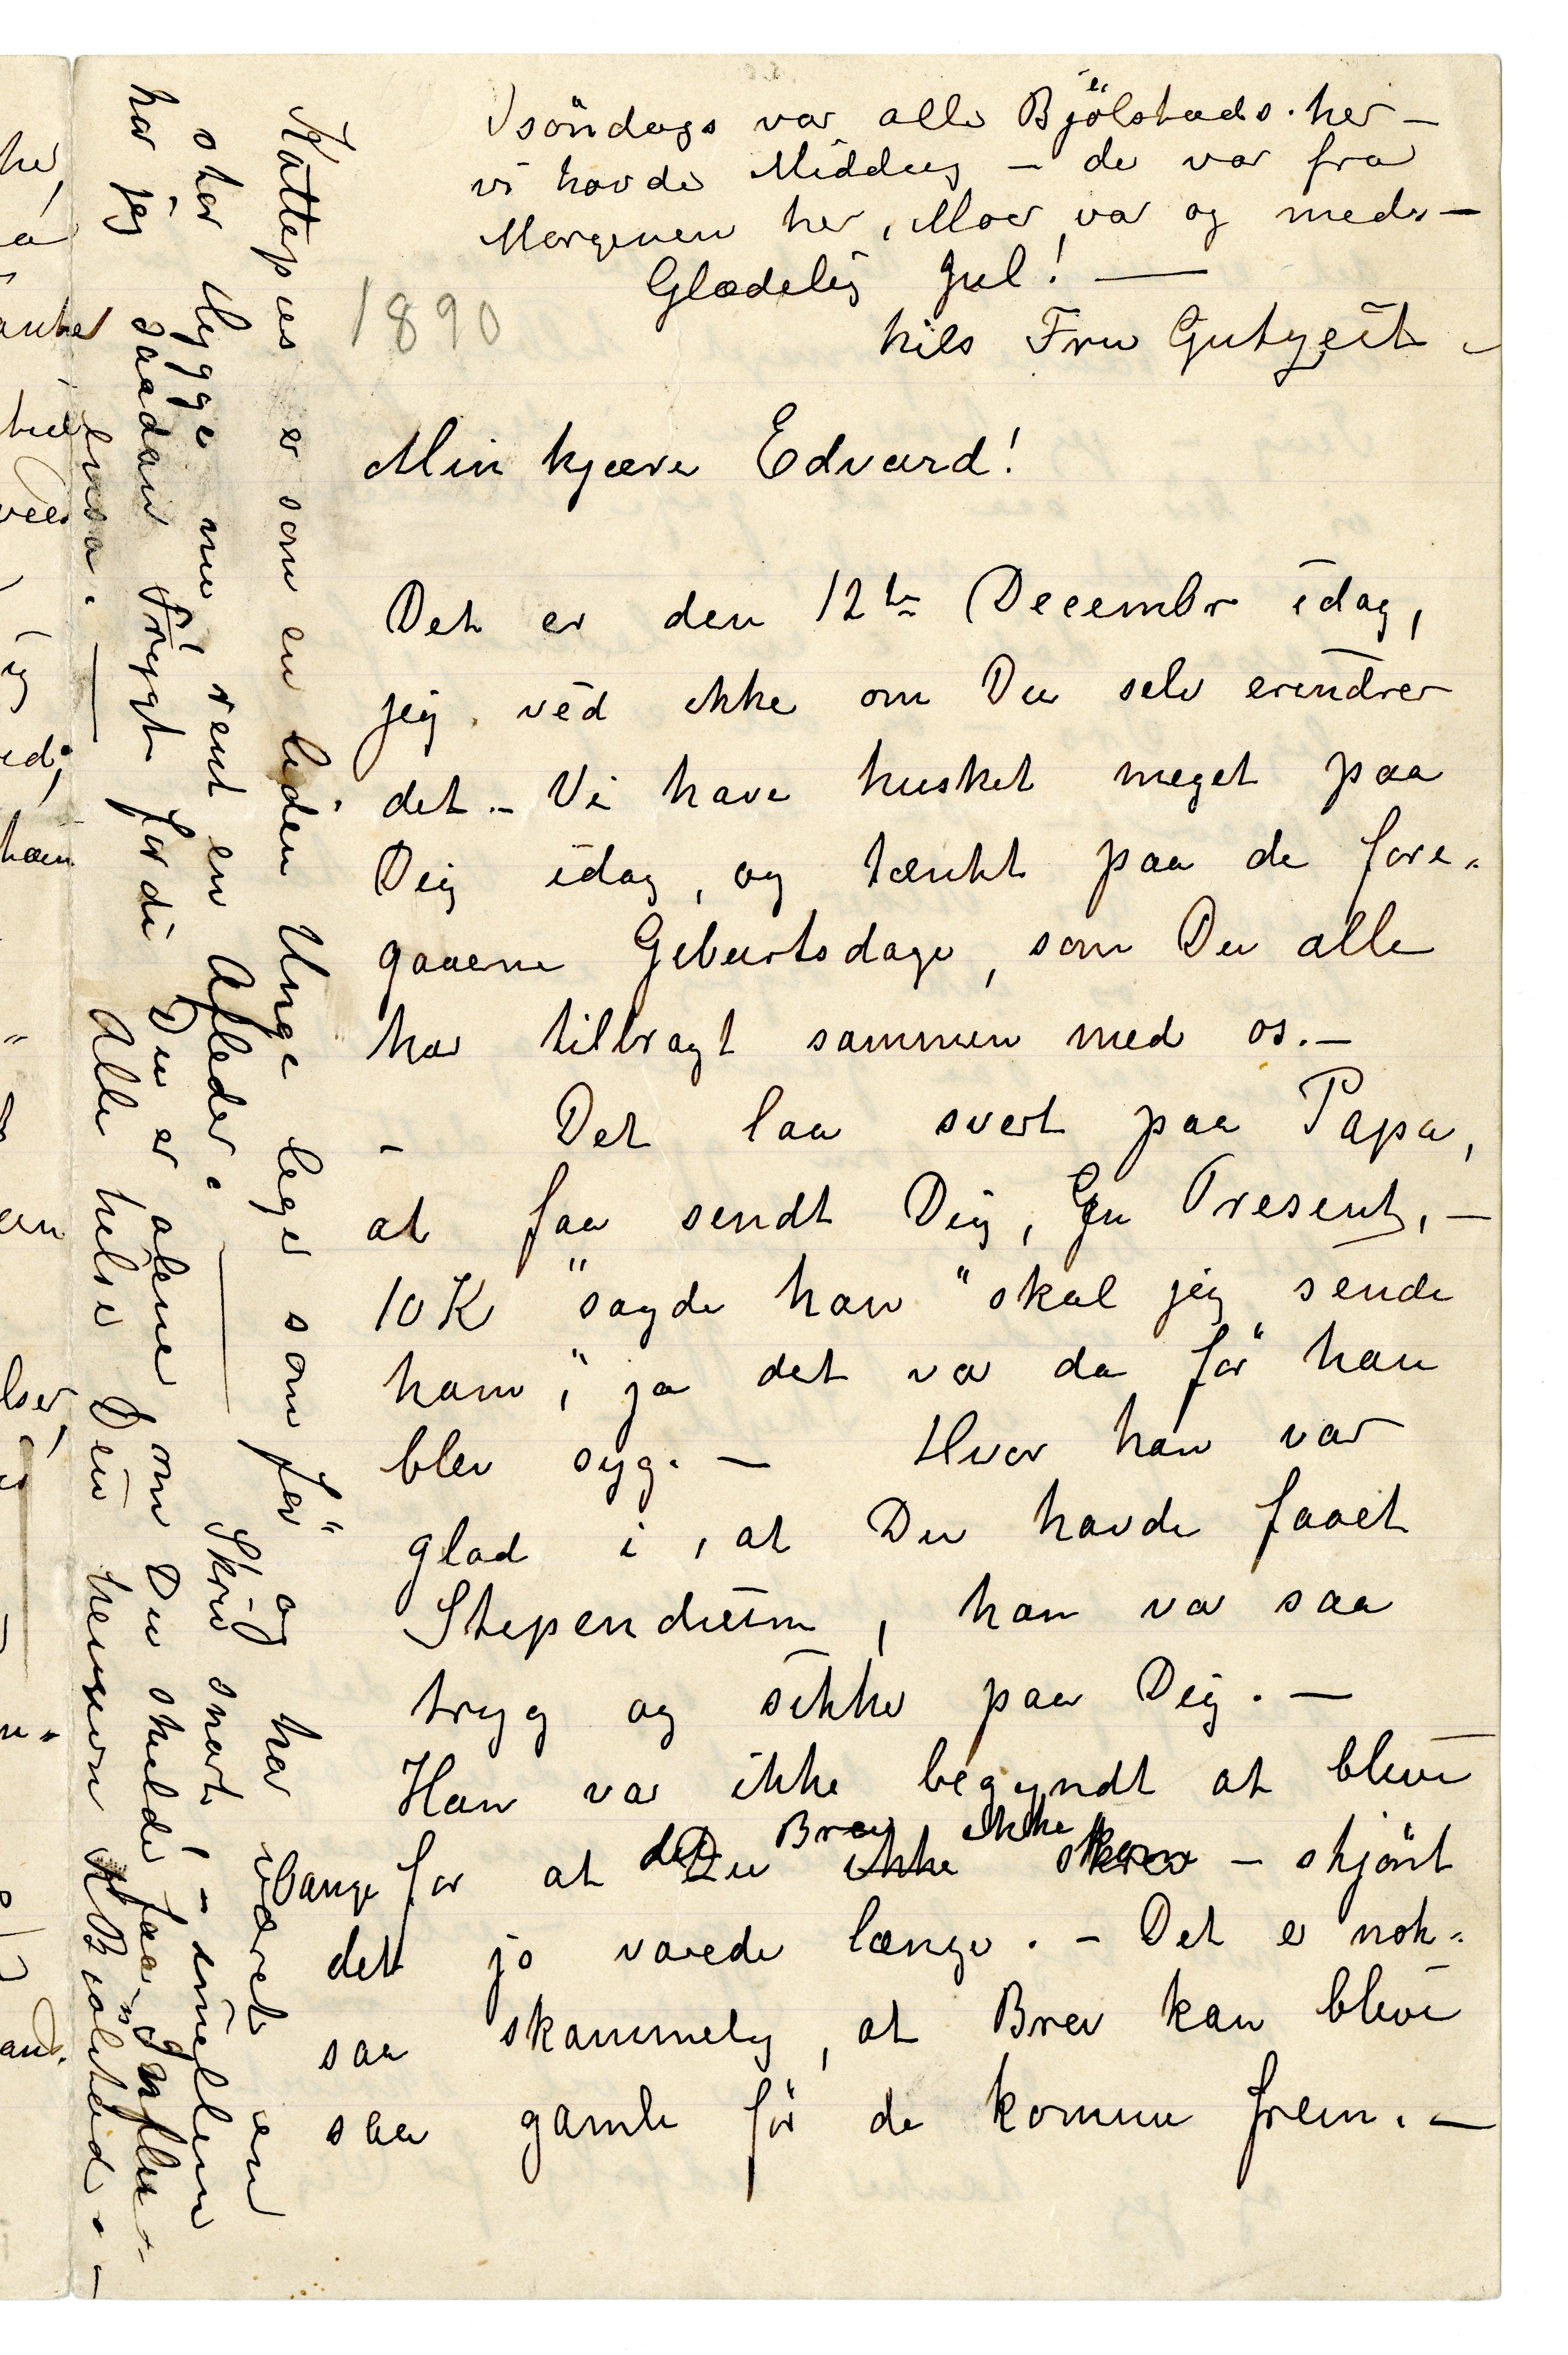 Isöndags var alle Bjölstads her –
vi havde Middag – de var fra
Morgenen her, Moer var og med –
Glædelig Jul! —
hils Fru Gutzeit –
1890
Min kjære Edvard!
Det er den 12te Decembr idag,
jeg ved ikke om Du selv erindrer
det – Vi have husket meget paa
Dig idag, og tænkt paa de fore-
gaaene Geburtsdage, som Du alle
har tilbragt sammen med os. –
– Det laa svert paa Papa,
at faa sendt Dig, En Present, –
10 K "sagde han "skal jeg sende
ham", ja det var da för han
blev syg. – Hvor han var
glad i, at Du havde faaet
Stipendium, han var saa
tryg og sikker paa Dig. –
Han var ikke begyndt at blive
det Brev ikke kom
bange for at Du ikke skrev – skjönt
det jo varede længe. – Det er nok
saa skammelig, at Brev kan blive
saa gamle för de komme frem. –
Kattepus er som en liden Unge leger som för og har været en
stor Hygge nu, rent en Afleder. — Skriv snart, – imellem
har jeg saadan Frygt fordi Du er alene om Du skulde faa Influ-
ensa. — Alle hilse Din hengivn KBjölstad. –